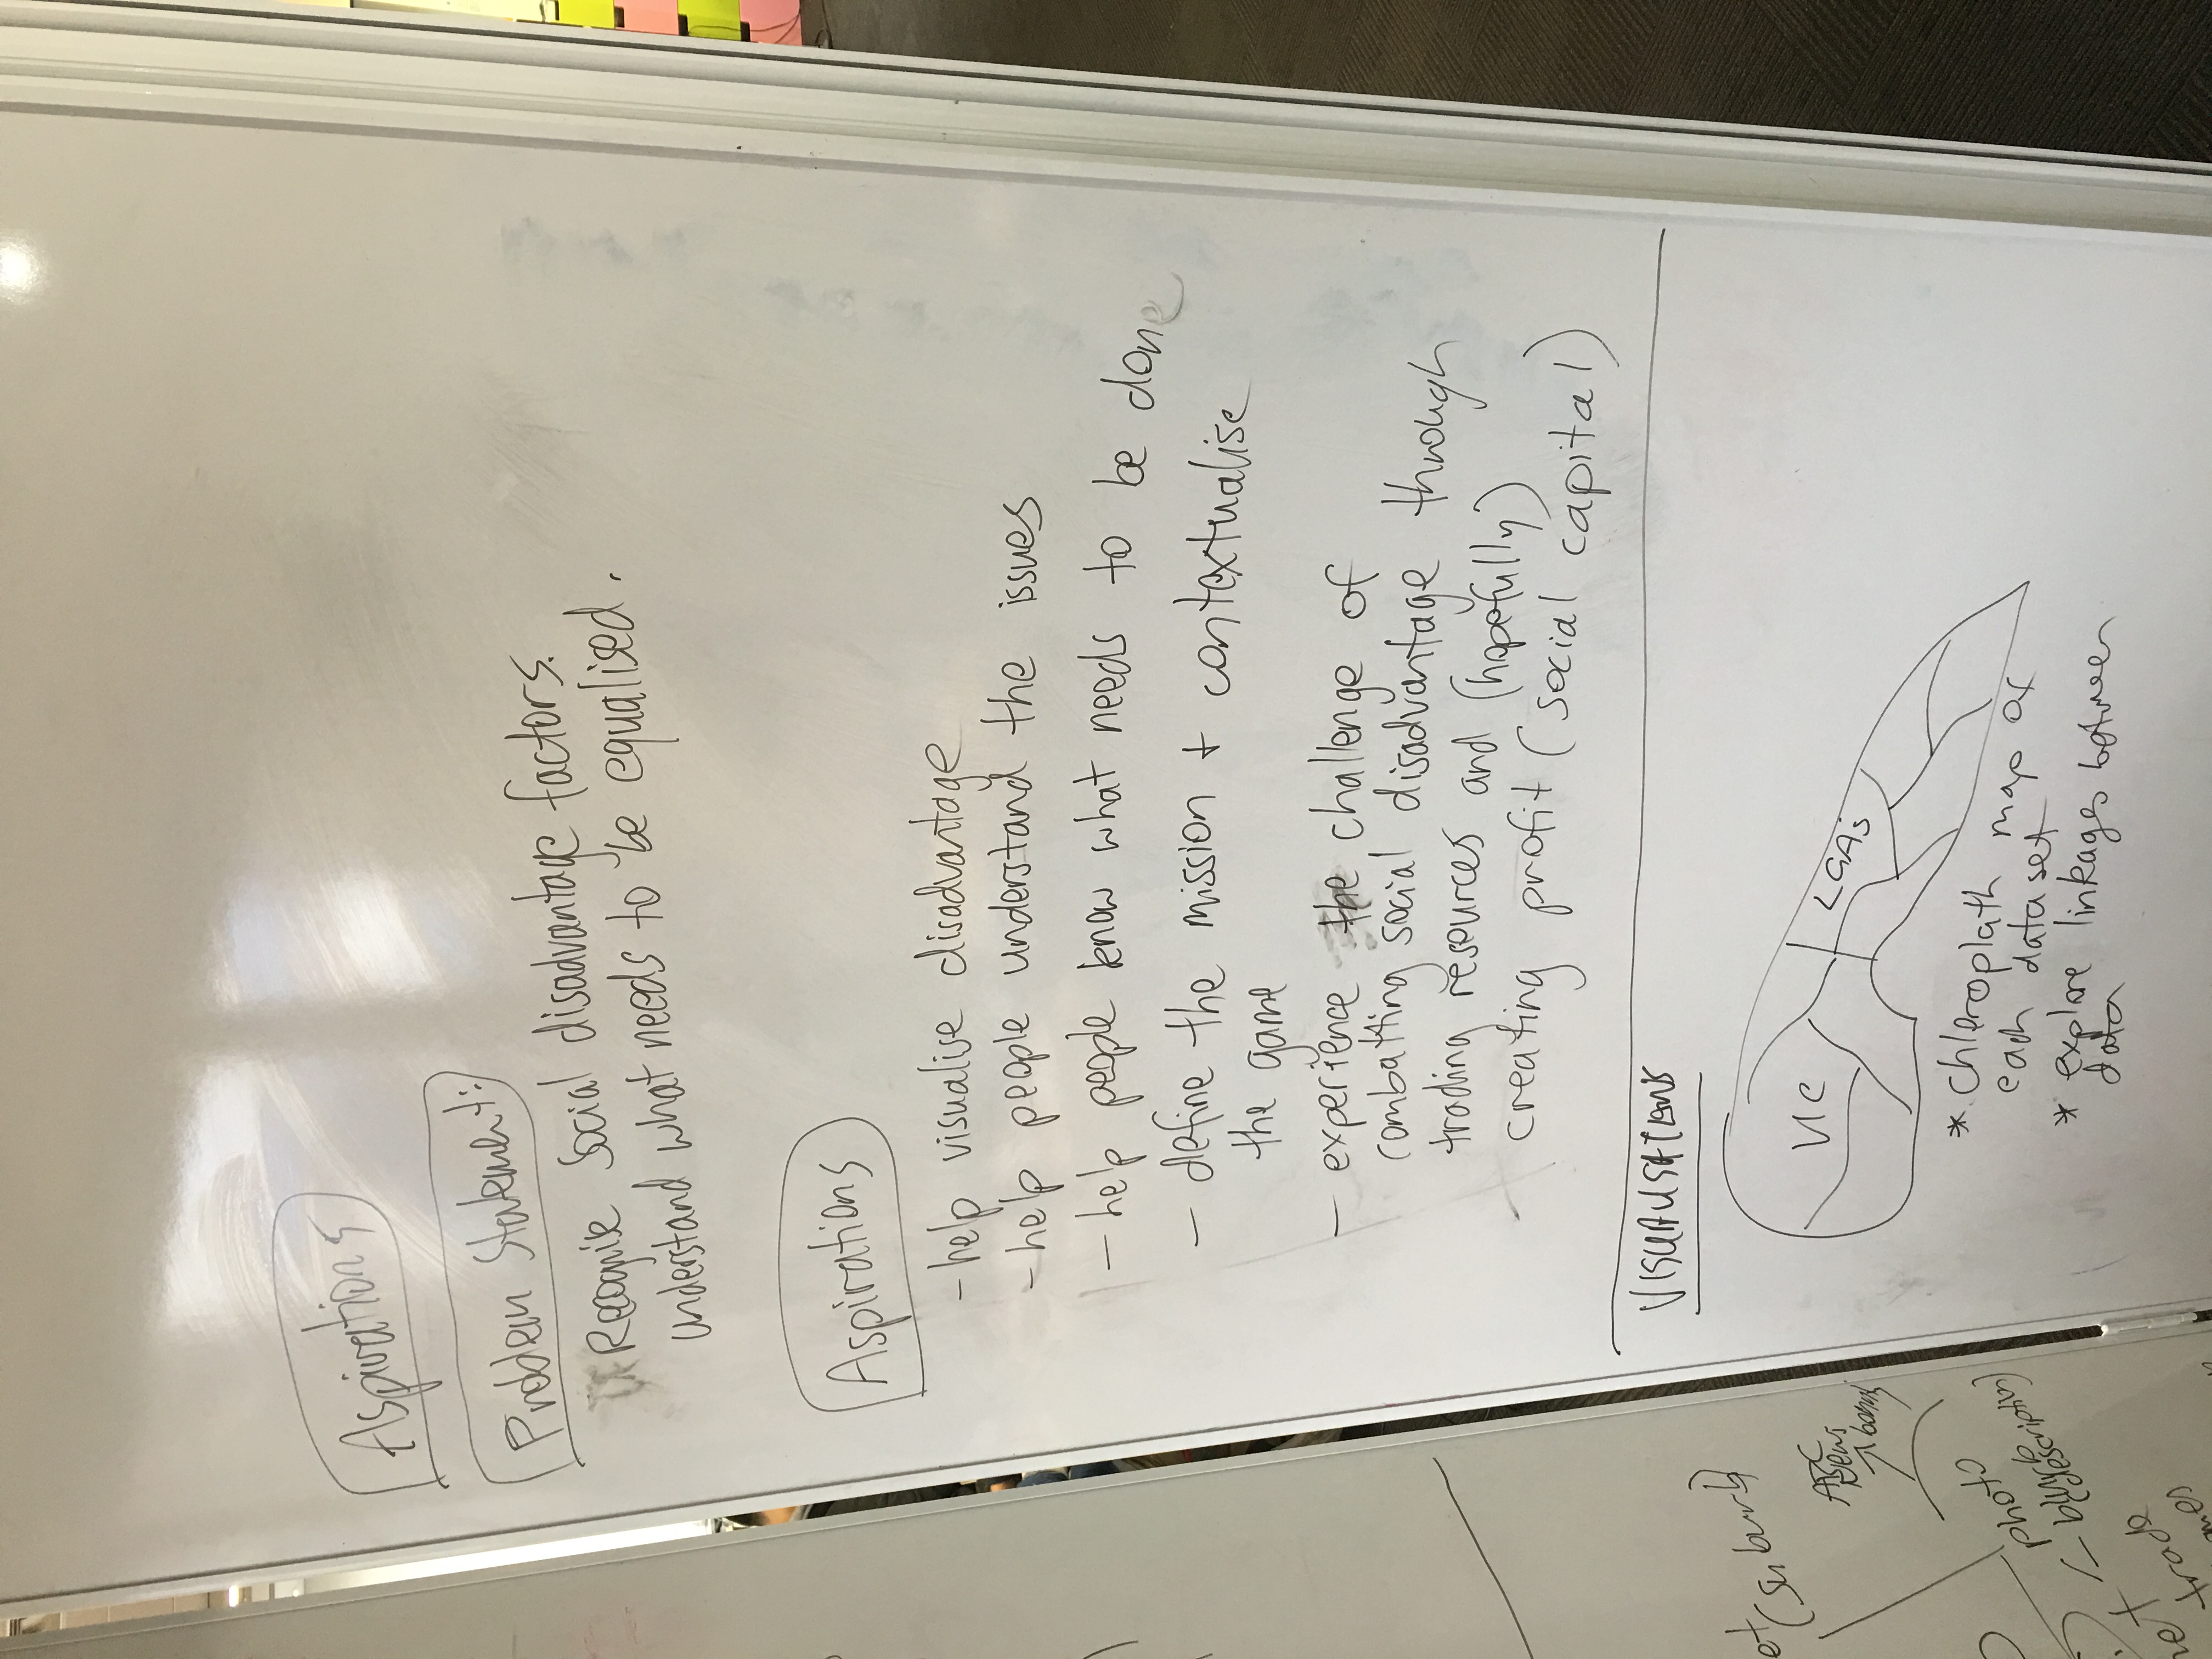 Aspirations
Problem Statement:
Recognise Social disadvantage factors.
understand what needs to be equalised.
Aspirations
- help visualise disadvantage
- help people understand the issues
- help people know what needs to be done
- define the mission + contextualise
the game
- experience the challenge of
combatting social disadvantage through
trading resources and (hopefully)
creating profit (social capital)
VISUALISATIONS
VIC
LGAs
* Chleroplath map of
each dataset
* explore linkages between
data
(suburb)
ABC
News
photo
blurb
(description)
trade